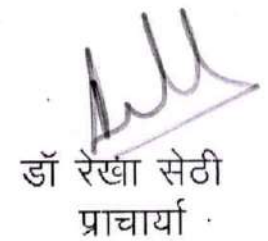 डॉ रेखा सेठी
प्राचार्या